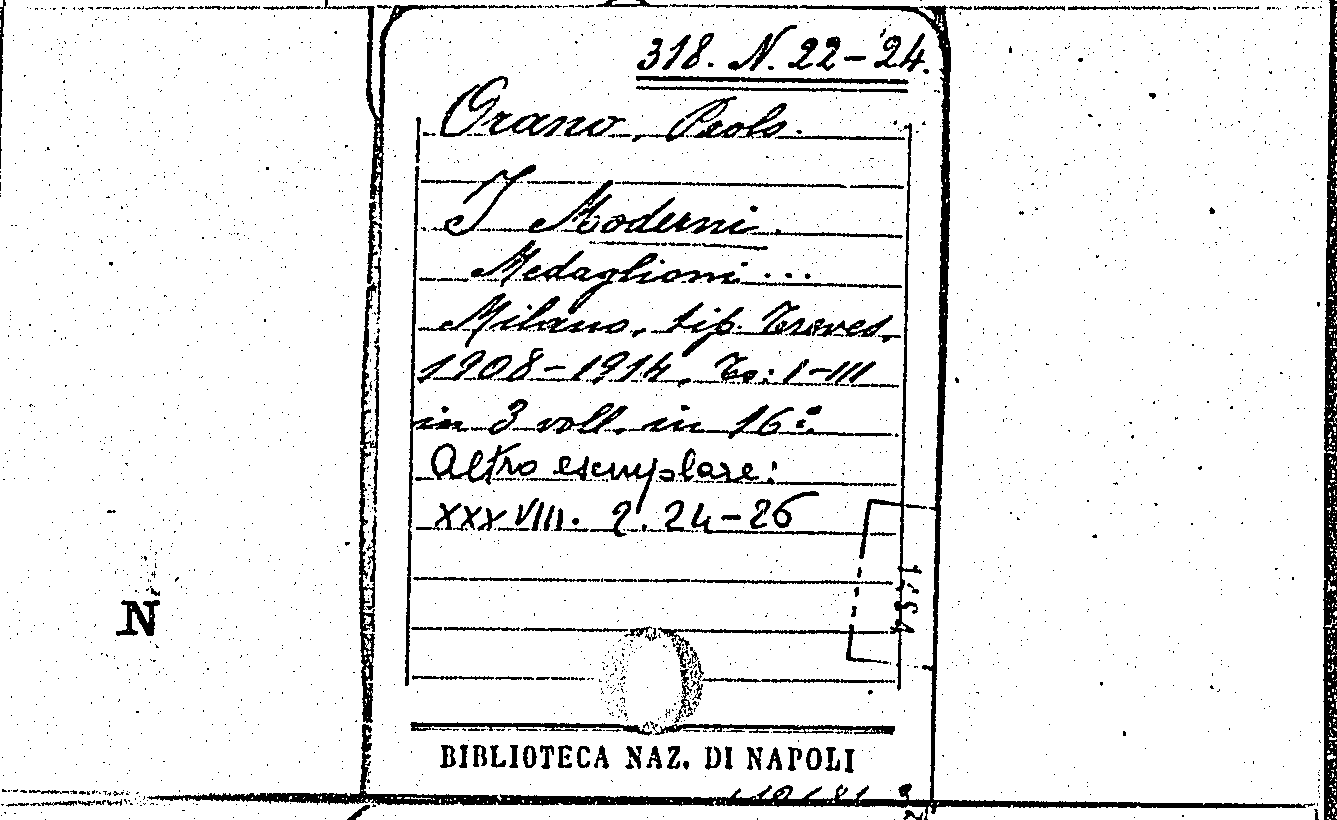 318. N. 22-24.
Orano, Paolo.
I Moderni.
Medaglioni ...
Milano, tip. Treves,
1908-1914. To: I-III
in 3 voll. in 16º.
Altro esemplare:
XXXVIII. 2. 24-26
N
BIBLIOTECA NAZ. DI NAPOLI